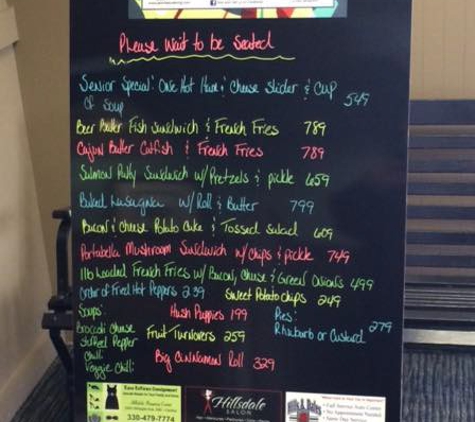 Please Wait to be Seated
Senior Special: One Hot Ham & Cheese Slider & Cup
Of Soup 549
Beer Batter Fish Sandwich & French Fries 789
Cajun Batter Catfish & French Fries 789
Salmon Patty Sandwich w/ Pretzels & pickle 659
Baked Lasagna w/ Roll & Butter 799
Bacon & Cheese Potato Cake & Tossed Salad 609
Portabella Mushroom Sandwich w/ chips & pickle 749
1lb Loaded French Fries w/ Bacon, Cheese & Green Onions 499
Order of Fried Hot Peppers 239 Sweet Potato chips 249
Soups: Hush Puppies 199 Pies:
Broccoli Cheese Fruit Turnovers 259 Rhubarb or Custard 279
Stuffed Pepper
Chili Big Cinnamon Roll 329
Veggie Chili
330-479-7774
Hillsdale
SALON
Hills & Dales
• Full Service Auto Center
• No Appointment Needed
• Same Day Service